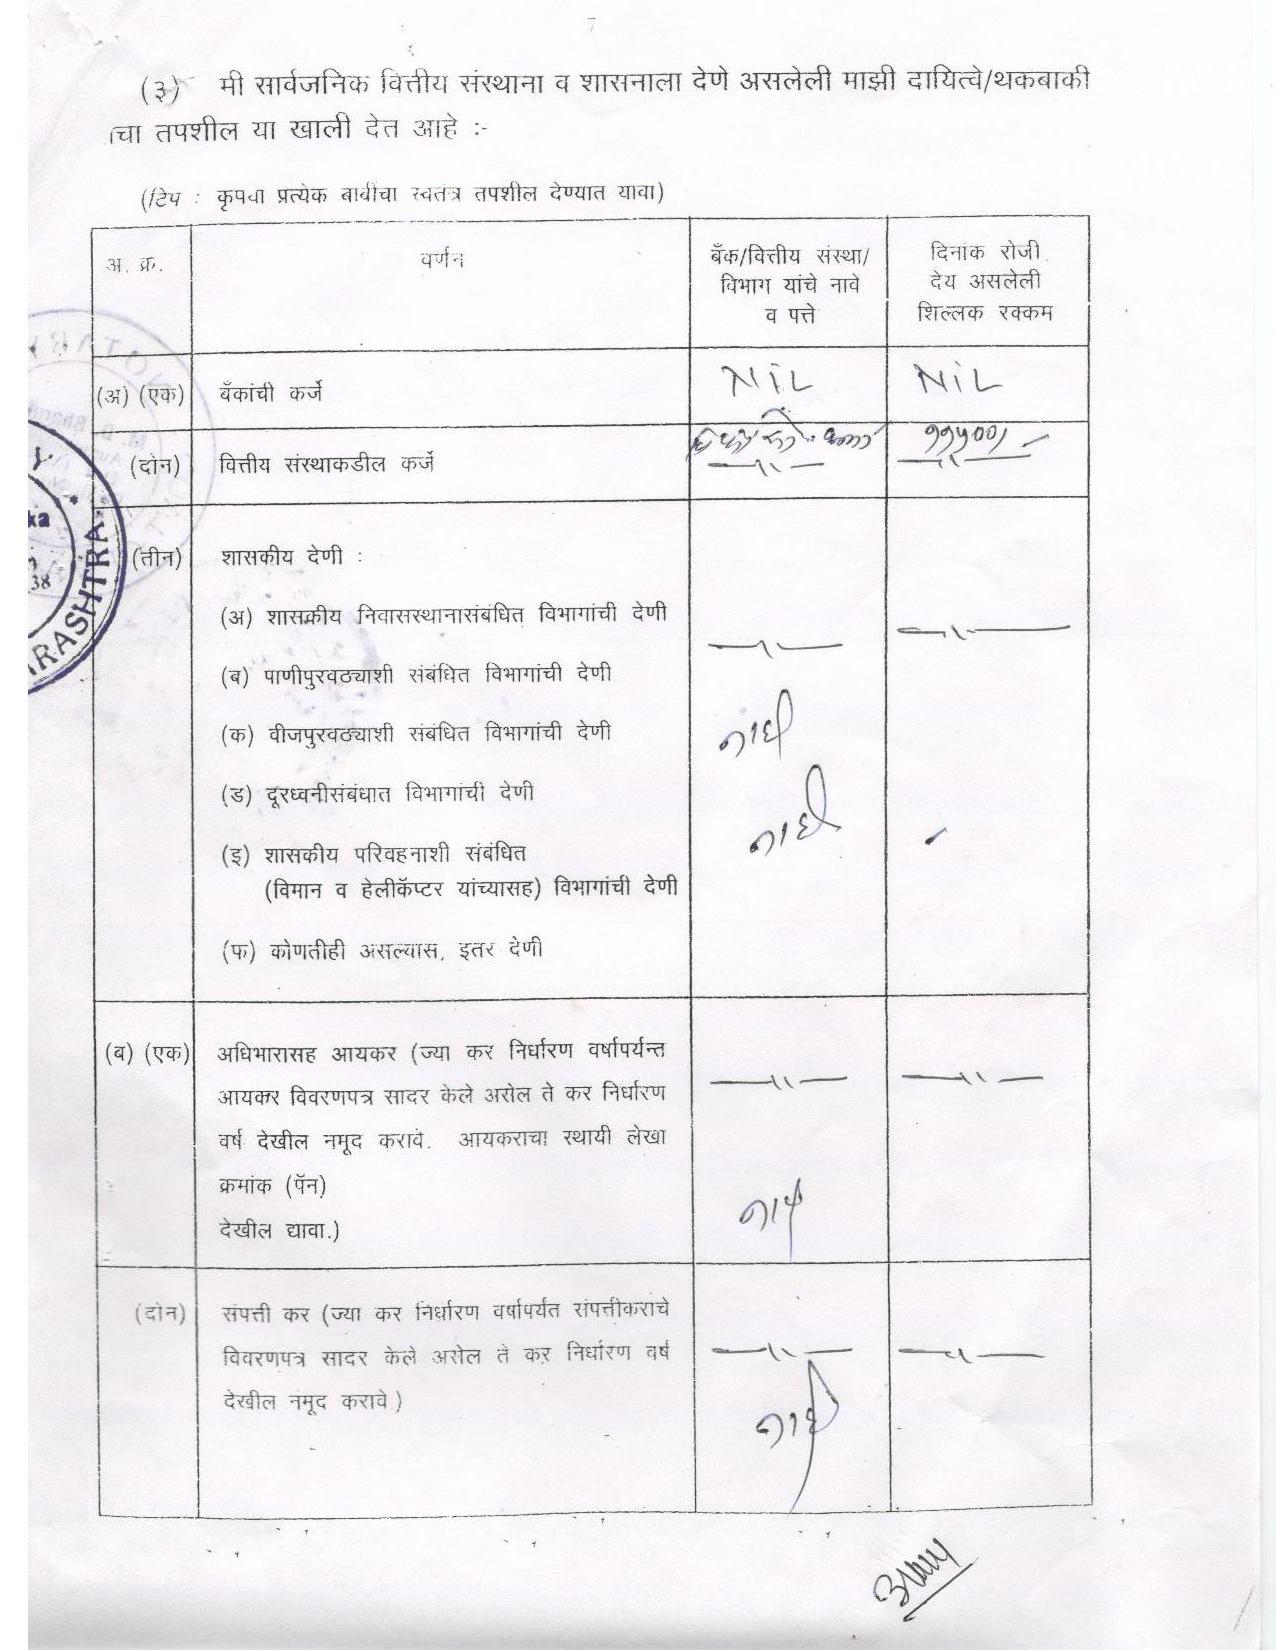 7
(३) मी सार्वजनिक वित्तीय संस्थाना व शासनाला देणे असलेली माझी दायित्वे/थकबाकी
ाचा तपशील या खाली देत आहे :-
(टिप : कृपया प्रत्येक बाबींचा स्वतंत्र तपशील देण्यात यावा)
अ. क्र.
वर्णन
बँक/वित्तीय संस्था/
विभाग यांचे नावे
व पत्ते
दिनांक रोजी
देय असलेली
शिल्लक रक्कम
(अ) (एक) बँकांची कर्जे NIL NIL
(दोन) वित्तीय संस्थाकडील कर्जे ११५००/-
—॥— —॥—
(तीन) शासकीय देणी :
(अ) शासकीय निवासस्थानासंबंधित विभागांची देणी —॥— —॥—
(ब) पाणीपुरवठ्याशी संबंधित विभागांची देणी
(क) वीजपुरवठ्याशी संबंधित विभागांची देणी नाही
(ड) दूरध्वनीसंबंधात विभागांची देणी
नाही
(इ) शासकीय परिवहनाशी संबंधित
(विमान व हेलीकॅप्टर यांच्यासह) विभागांची देणी
(फ) कोणतीही असल्यास, इतर देणी
(ब) (एक) अधिभारासह आयकर (ज्या कर निर्धारण वर्षापर्यन्त —॥— —॥—
आयकर विवरणपत्र सादर केले असेल ते कर निर्धारण
वर्ष देखील नमूद करावे. आयकराचा स्थायी लेखा
क्रमांक (पॅन) नाही
देखील द्यावा.)
(दोन) संपत्ती कर (ज्या कर निर्धारण वर्षापर्यंत संपत्तीकराचे
विवरणपत्र सादर केले असेल ते कर निर्धारण वर्ष —॥— —॥—
देखील नमूद करावे.) नाही
ARASHTRA
38
NOTARY